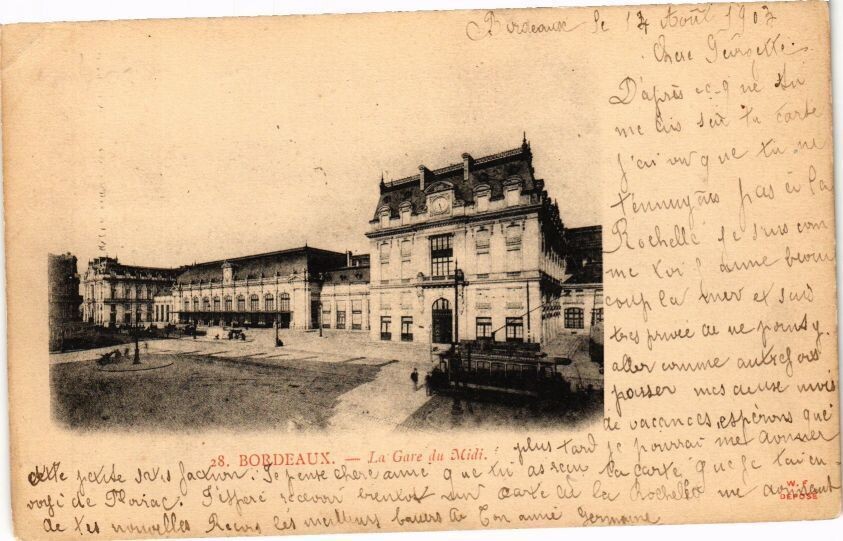 Bordeaux le 17 Août 1903
Chere Georgette.
D'après ce que tu
me dis sur ta carte
j'ai vu que tu ne
t'ennuyais pas à la
Rochelle je suis com
me toi j'aime beau
coup la mer et suis
tres privée de ne pouvoir y
aller comme autrefois
passer mes deux mois
de vacances, espérons que
plus tard je pourrai me donner
28. BORDEAUX. — La Gare du Midi.
cette petite satisfaction. Je pense chere amie que tu as reçu la carte que je t'ai en
voyé de Floirac. J'espère recevoir bientot une carte de la Rochelle me donnant
de tes nouvelles Reçois les meilleurs baisers de ton amie Germaine
W. F.
DÉPOSÉ